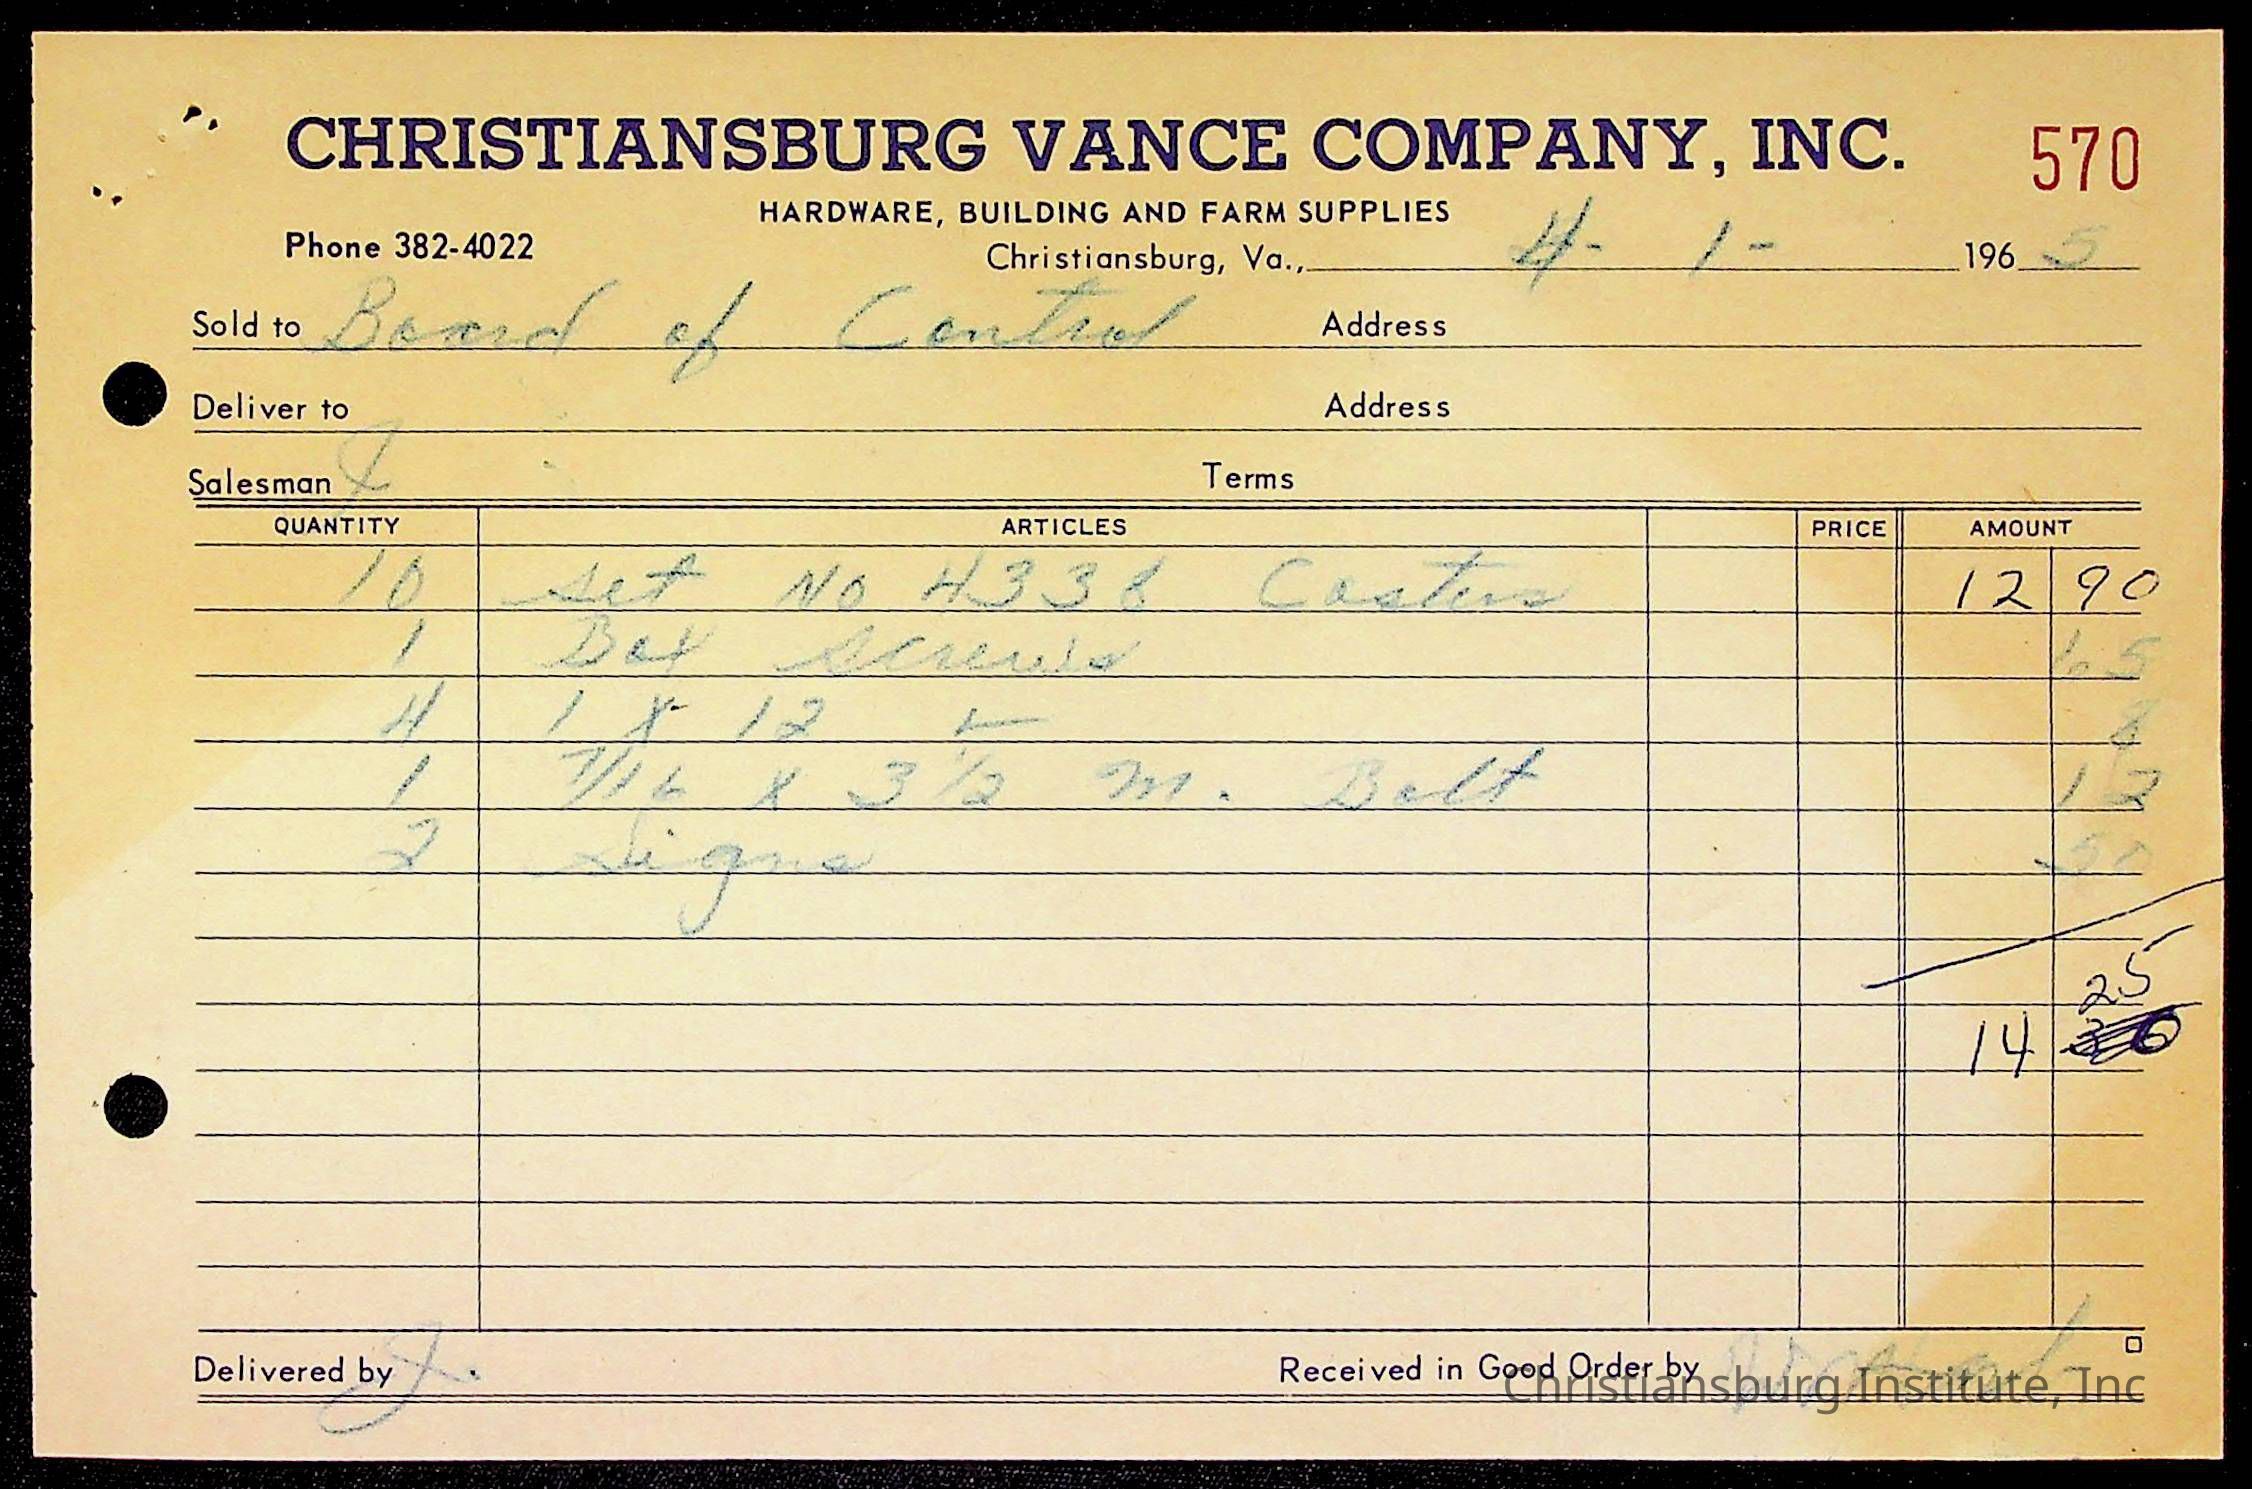 CHRISTIANSBURG VANCE COMPANY, INC. 570
HARDWARE, BUILDING AND FARM SUPPLIES
Phone 382-4022 Christiansburg, Va., 4- 1- 1965
Sold to Board of Control Address
Deliver to Address
Salesman J Terms
QUANTITY ARTICLES PRICE AMOUNT
10 set No 4338 Casters 12 90
1 Box Screws 65
4 1 x 12 8
1 7/16 x 3 1/2 M. Bolt 12
2 Signs 50
25
14
Delivered by J. Received in Good Order by
Christiansburg Institute, Inc